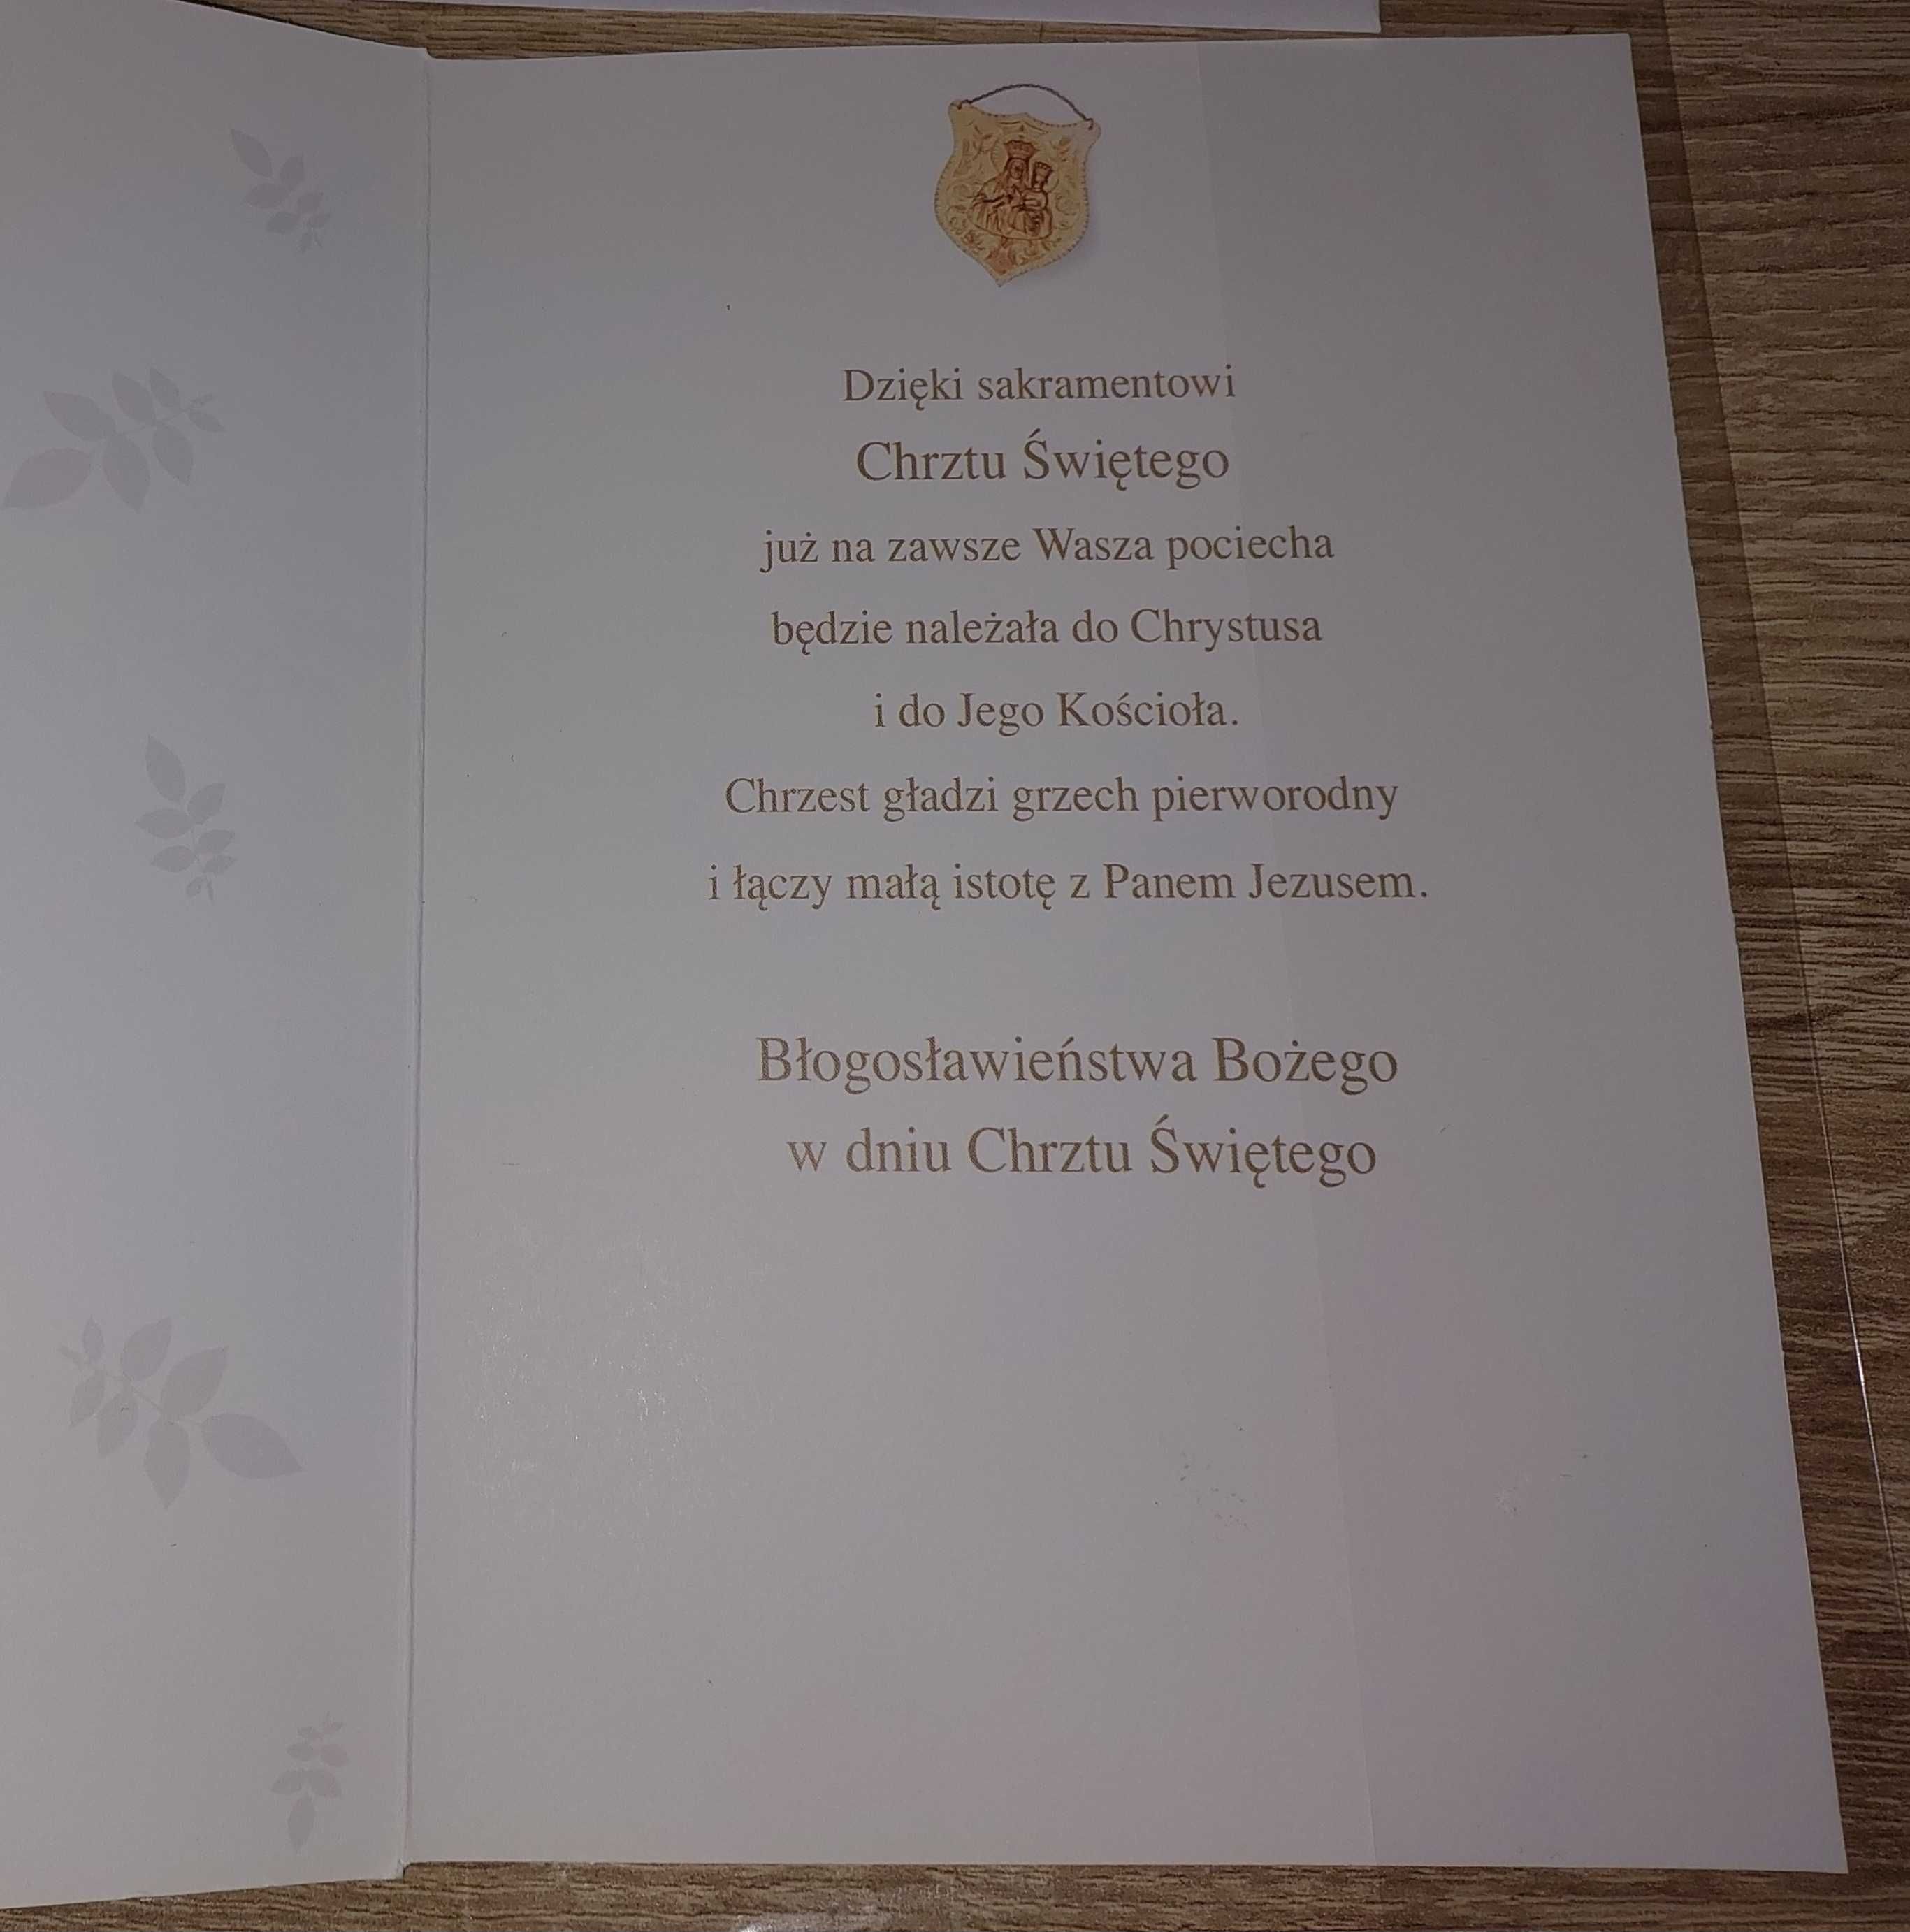 Dzięki sakramentowi
Chrztu Świętego
już na zawsze Wasza pociecha
będzie należała do Chrystusa
i do Jego Kościoła.
Chrzest gładzi grzech pierworodny
i łączy małą istotę z Panem Jezusem.
Błogosławieństwa Bożego
w dniu Chrztu Świętego